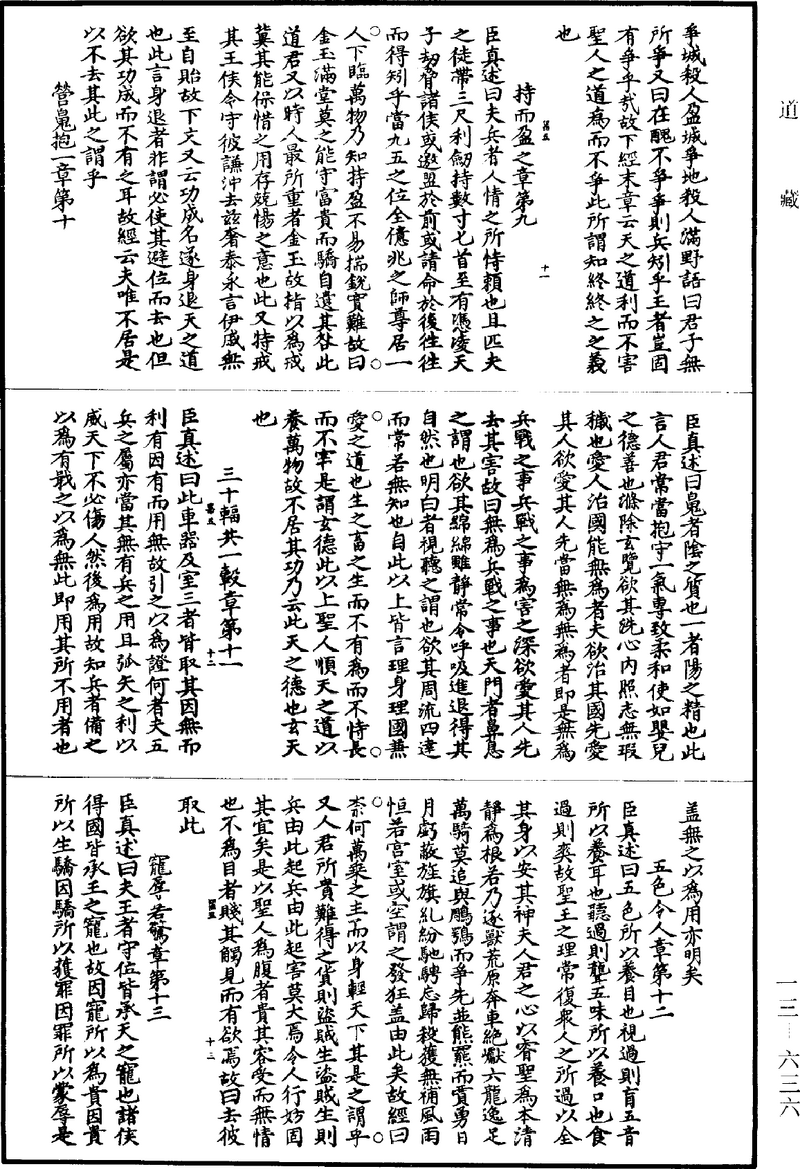 道藏
一三—六三六
爭城殺人盈城爭地殺人滿野語曰君子無
所爭又曰在醜不爭爭則兵矧乎王者豈固
有爭乎哉故下經末章云天之道利而不害
聖人之道為而不爭此所謂知終終之之義
也
持而盈之章第九
臣真述曰夫兵者人情之所恃賴也且匹夫
之徒帶三尺利劒持數寸匕首至有憑凌天
子劫脅諸侯或邀盟於前或請命於後往往
而得矧乎當九五之位全億兆之師尊居一
人下臨萬物乃知持盈不易揣銳實難故曰
金玉滿堂莫之能守富貴而驕自遺其咎此
道君又以時人最所重者金玉故指以為戒
冀其能保惜之用存兢惕之意也此又特戒
其王侯令守彼謙沖去兹奢泰永言伊戚無
至自貽故下文又云功成名遂身退天之道
也此言身退者非謂必使其避位而去也但
欲其功成而不有之耳故經云夫唯不居是
以不去其此之謂乎
營魄抱一章第十
臣真述曰魄者陰之質也一者陽之精也此
言人君常當抱守一氣專致柔和使如嬰兒
之德善也滌除玄覽欲其洗心內照志無瑕
穢也愛人治國能無為者夫欲治其國先愛
其人欲愛其人先當無為無為者即是無為
兵戰之事兵戰之事為害之深欲愛其人先
去其害故曰無為兵戰之事也天門者鼻息
之謂也欲其綿綿雖靜常令呼吸進退得其
自然也明白者視聽之謂也欲其周流四達
而常若無知也自此以上皆言理身理國兼
愛之道也生之畜之生而不有為而不恃長
而不宰是謂玄德此以上聖人順天之道以
養萬物故不居其功乃云此天之德也玄天
也
三十輻共一轂章第十一
臣真述曰此車器及室三者皆取其因無而
利有因有而用無故引之以為證何者夫五
兵之屬亦當其無有兵之用且弧矢之利以
威天下不必傷人然後為用故知兵者備之
以為有戢之以為無此即用其所不用者也
蓋無之以為用亦明矣
五色令人章第十二
臣真述曰五色所以養目也視過則盲五音
所以養耳也聽過則聾五味所以養口也食
過則爽故聖王之理常復衆人之所過以全
其身以安其神夫人君之心以睿聖為本清
靜為根若乃逐獸荒原奔車絕巘六龍逸足
萬騎莫追與鵬鶚而爭先並熊羆而賈勇日
月虧蔽旌旗紛馳騁忘歸殺獲無補風雨
恒若宮室或空謂之發狂蓋由此矣故經曰
柰何萬乘之主而以身輕天下其是之謂乎
又人君所貴難得之貨則盜賊生盜賊生則
兵由此起兵由此起害莫大焉令人行妨固
其宜矣是以聖人為腹者貴其容受而無情
也不為目者賤其觸見而有欲焉故曰去彼
取此
寵辱若驚章第十三
臣真述曰夫王者守位皆承天之寵也諸侯
得國皆承王之寵也故因寵所以為貴因貴
所以生驕因驕所以獲罪因罪所以蒙辱是